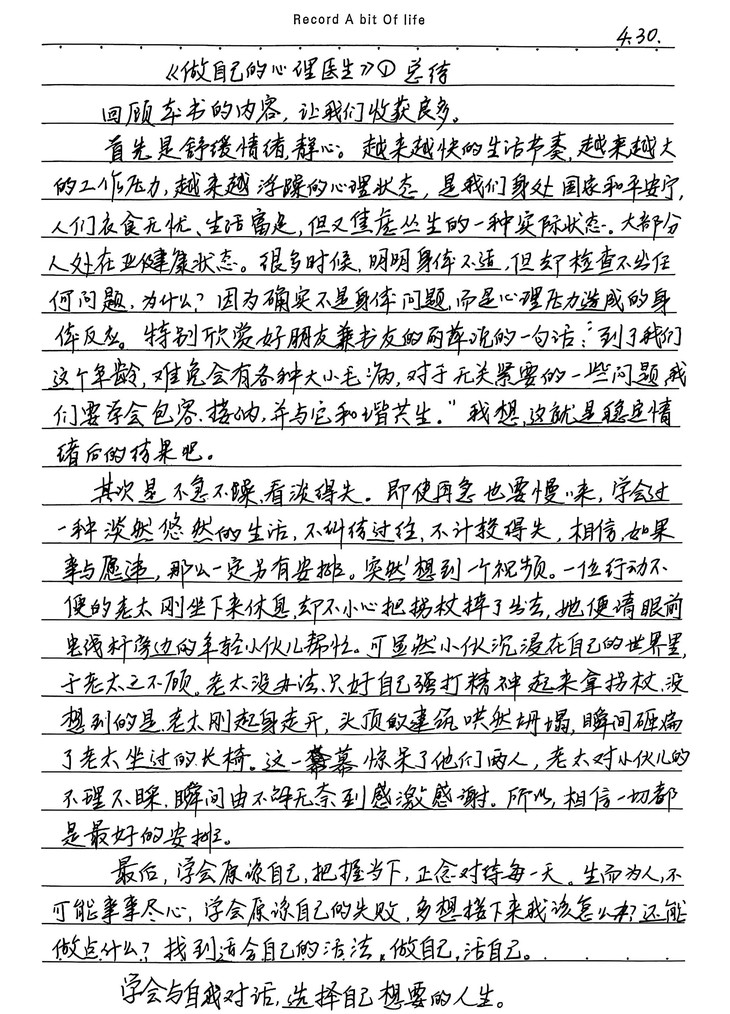 Record A bit Of life
4.30.
《做自己的心理医生》① 总结
回顾本书的内容，让我们收获良多。
首先是舒缓情绪，静心。越来越快的生活节奏，越来越大
的工作压力，越来越浮躁的心理状态，是我们身处国家和平安宁，
人们衣食无忧、生活富足，但又焦虑丛生的一种实际状态。大部分
人处在亚健康状态。很多时候，明明身体不适，但却检查不出任
何问题，为什么？因为确实不是身体问题，而是心理压力造成的身
体反应。特别欣赏好朋友兼书友的丽萍说的一句话："到了我们
这个年龄，难免会有各种大小毛病，对于无关紧要的一些问题，我
们要学会包容、接纳，并与它和谐共生。"我想，这就是稳定情
绪后的结果吧。
其次是不急不躁，看淡得失。即使再急也要慢下来，学会过
一种淡然悠然的生活，不纠结过往，不计较得失，相信，如果
事与愿违，那么一定另有安排。突然想到一个视频。一位行动不
便的老太刚坐下来休息，却不小心把拐杖摔了出去，她便请眼前
电线杆旁边的年轻小伙儿帮忙。可显然小伙沉浸在自己的世界里，
于老太之不顾。老太没办法，只好自己强打精神起来拿拐杖，没
想到的是，老太刚起身走开，头顶的建筑哄然坍塌，瞬间砸扁
了老太坐过的长椅。这一幕惊呆了他们两人，老太对小伙儿的
不理不睬，瞬间由不解无奈到感激感谢。所以，相信一切都
是最好的安排。
最后，学会原谅自己，把握当下，正念对待每一天。生而为人，不
可能事事尽心，学会原谅自己的失败，多想接下来我该怎么办？还能
做点什么？找到适合自己的活法，做自己，活自己。
学会与自我对话，选择自己想要的人生。